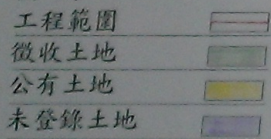 工程範圍
徵收土地
公有土地
未登錄土地